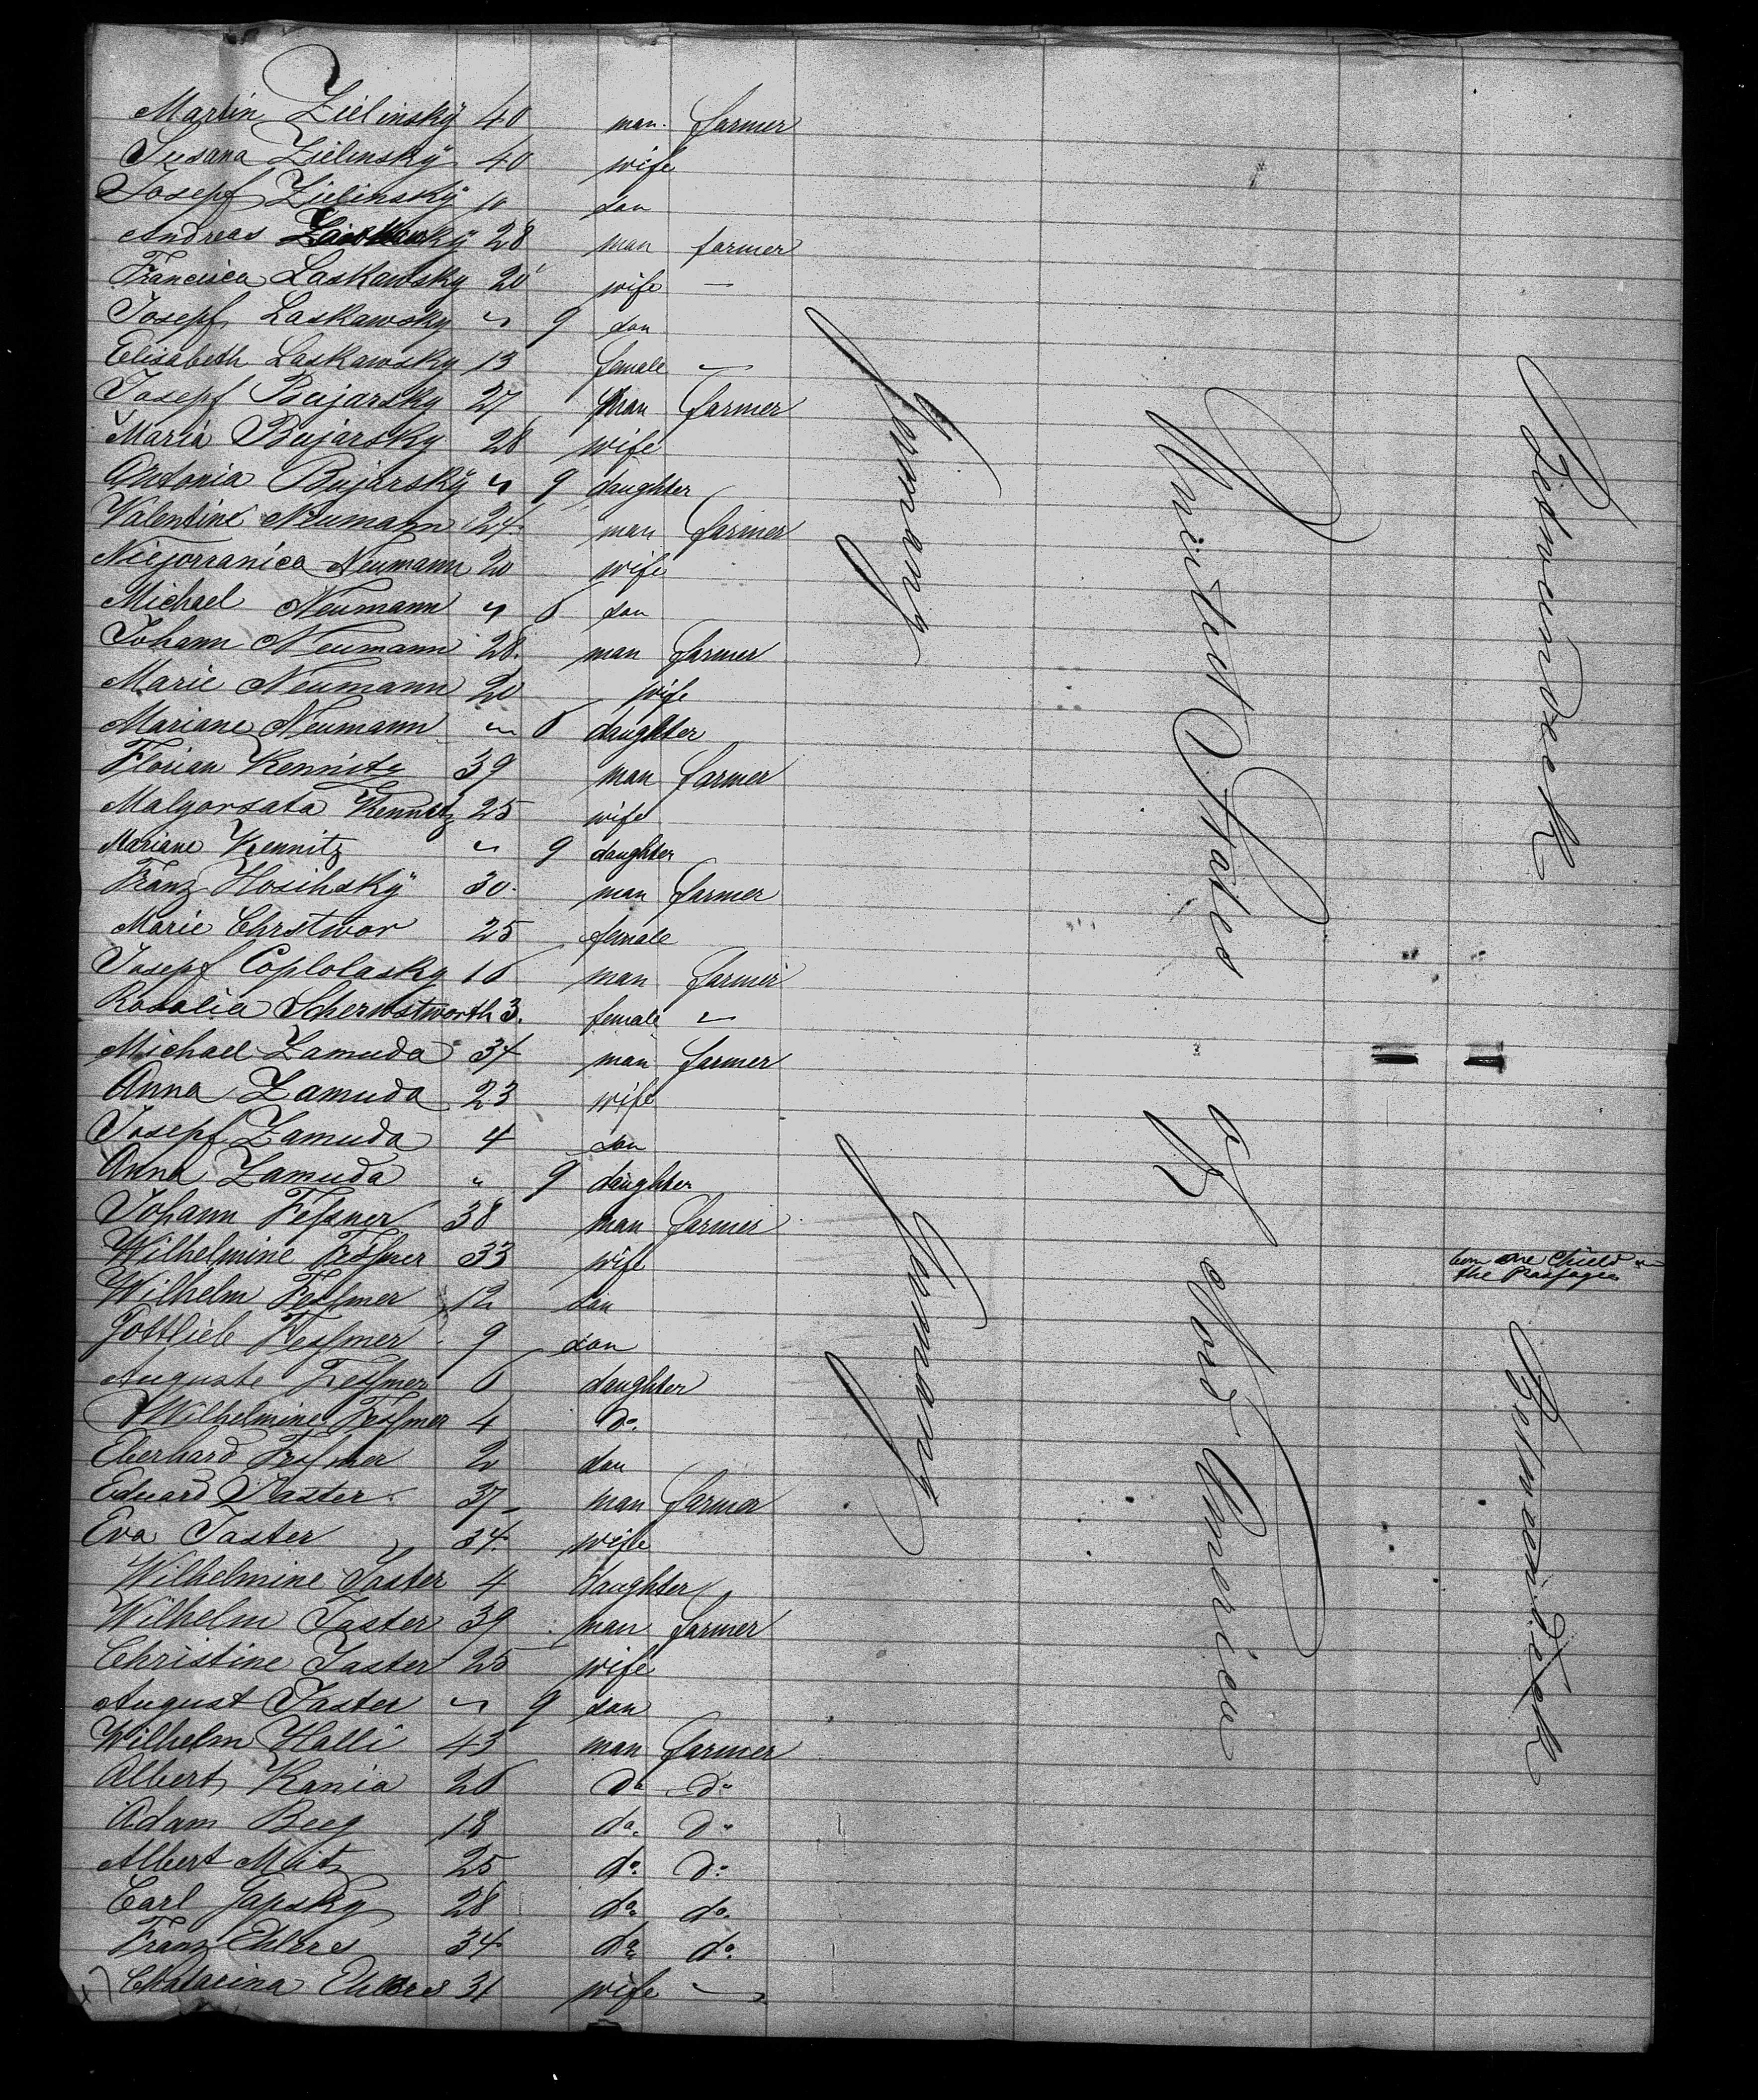 Martin Zielinskÿ 40 man farmer
Susana Zielinskÿ 40 wife
Josepf Zielinskÿ 10 son
Andreas 28 man farmer
Francisca Laskawsky 20 wife —
Josepf Laskawsky " 9 son
Elisabeth Laskawsky 13 female "
Josepf Bujarsky 27 man farmer
Maria Bujarsky 28 wife
Antonia Bujarskÿ " 9 daughter
Valentine Neumann 24 man farmer
Neumann 20 wife
Michael Neumann " 6 son
Johann Neumann 28 man farmer
Marie Neumann 20 wife
Mariane Neumann " 6 daughter
Florian Kennitz 39 man farmer
Malgorsata Kennitz 25 wife
Mariane Kennitz " 9 daughter
Franz Hosihskÿ 30 man farmer
Marie Chrstwor 25 female
Josepf Coplolasky 16 man farmer
Rosalia Schernstworth 3 female "
Michael Zamuda 34 man farmer
Anna Zamuda 23 wife
Josepf Zamuda 4 son
Anna Zamuda " 9 daughter
Johann Feßner 38 man farmer
Wilhelmine Feßmer 33 wife
Wilhelm Feßmer 12 son
Gottlieb Feßmer 9 son
Auguste Feßmer 6 daughter
Wilhelmine Feßmer 4 do.
Eberhard Feßmer 2 son
Eduard Jaster 37 man farmer
Eva Jaster 34 wife
Wilhelmine Jaster 4 daughter
Wilhelm Jaster 39 man farmer
Christine Jaster 25 wife
August Jaster " 9 son
Wilhelm Halli 43 man farmer
Albert Kania 26 do do
Adam Beeg 18 do. do
Albert Mitz 25 do. do.
Carl Gapsky 28 do. do.
Franz Ehlers 34 do. do.
Chatarina Ehlers 31 wife "
Germany
Germany
United States
of Nord America
born one Child on
the Passage
Zwischendeck
Zwischendeck